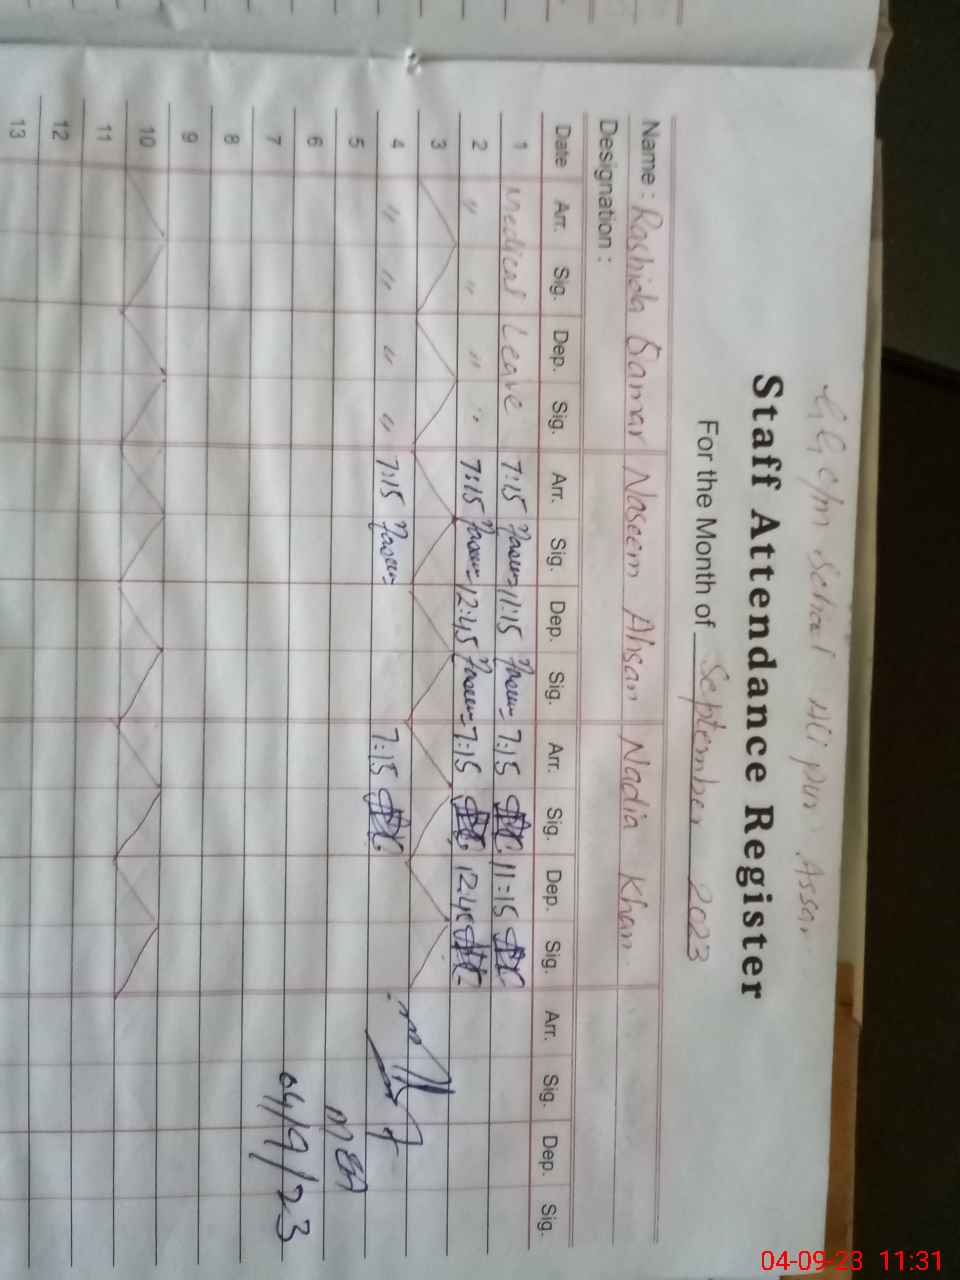 GGC/m school Alipur Assa
Staff Attendance Register
For the Month of September 2023
Name : Rashida Qamar Naseem Ahsan Nadia Khan
Designation :
Date Arr. Sig. Dep. Sig. Arr. Sig. Dep. Sig. Arr. Sig. Dep. Sig. Arr. Sig. Dep. Sig.
1 Medical Leave 7:15 Naseem 11:15 Naseem 7:15 11=15
2 " " " " 7:15 Naseem 12:45 Naseem 7:15 12:45
3
4 " " " " 7:15 Naseem 7:15
5 MEA
6
7 04/9/23
8
9
10
11
12
13
04-09-23 11:31